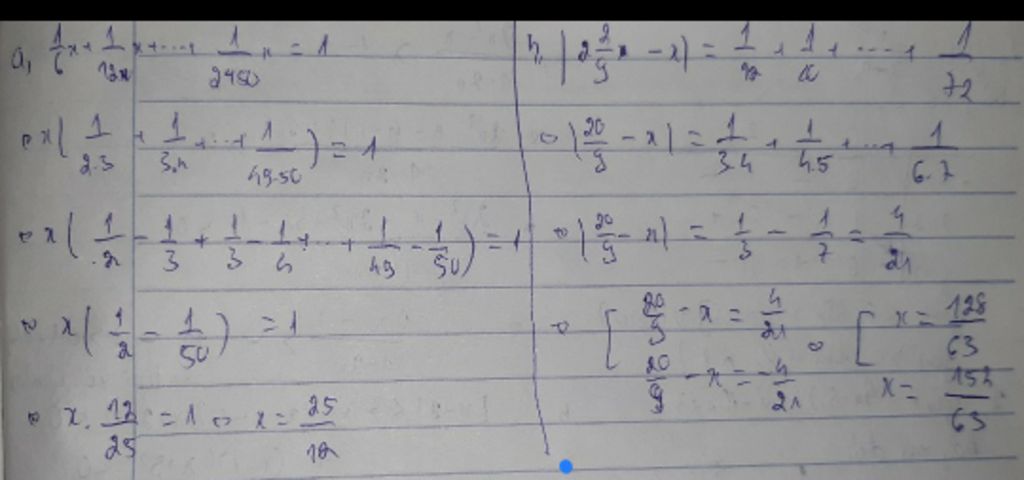 a, 1/6 x + 1/12x x + ... + 1/2450 x = 1
⇔ x( 1/2.3 + 1/3.4 + ... + 1/49.50 ) = 1
⇔ x( 1/2 - 1/3 + 1/3 - 1/4 + ... + 1/49 - 1/50 ) = 1
⇔ x( 1/2 - 1/50 ) = 1
⇔ x. 12/25 = 1 ⇔ x = 25/12
b, | 2 2/9 x - x | = 1/12 + 1/20 + ... + 1/72
⇔ | 20/9 - x | = 1/3.4 + 1/4.5 + ... + 1/6.7
⇔ | 20/9 - x | = 1/3 - 1/7 = 4/21
⇔ [ 20/9 - x = 4/21 ⇔ [ x = 128/63
20/9 - x = -4/21 x = 152/63